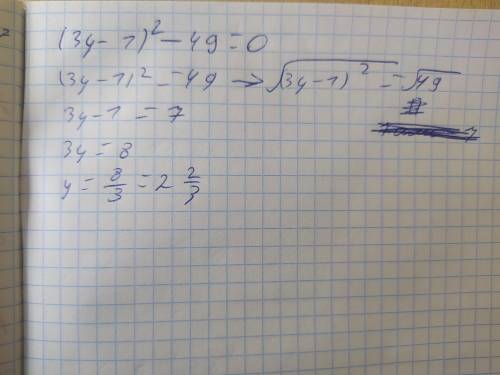 (3y-1)²-49=0
(3y-1)²=49 → √(3y-1)² = √49
3y-1=7
3y=8
y=8/3=2 2/3